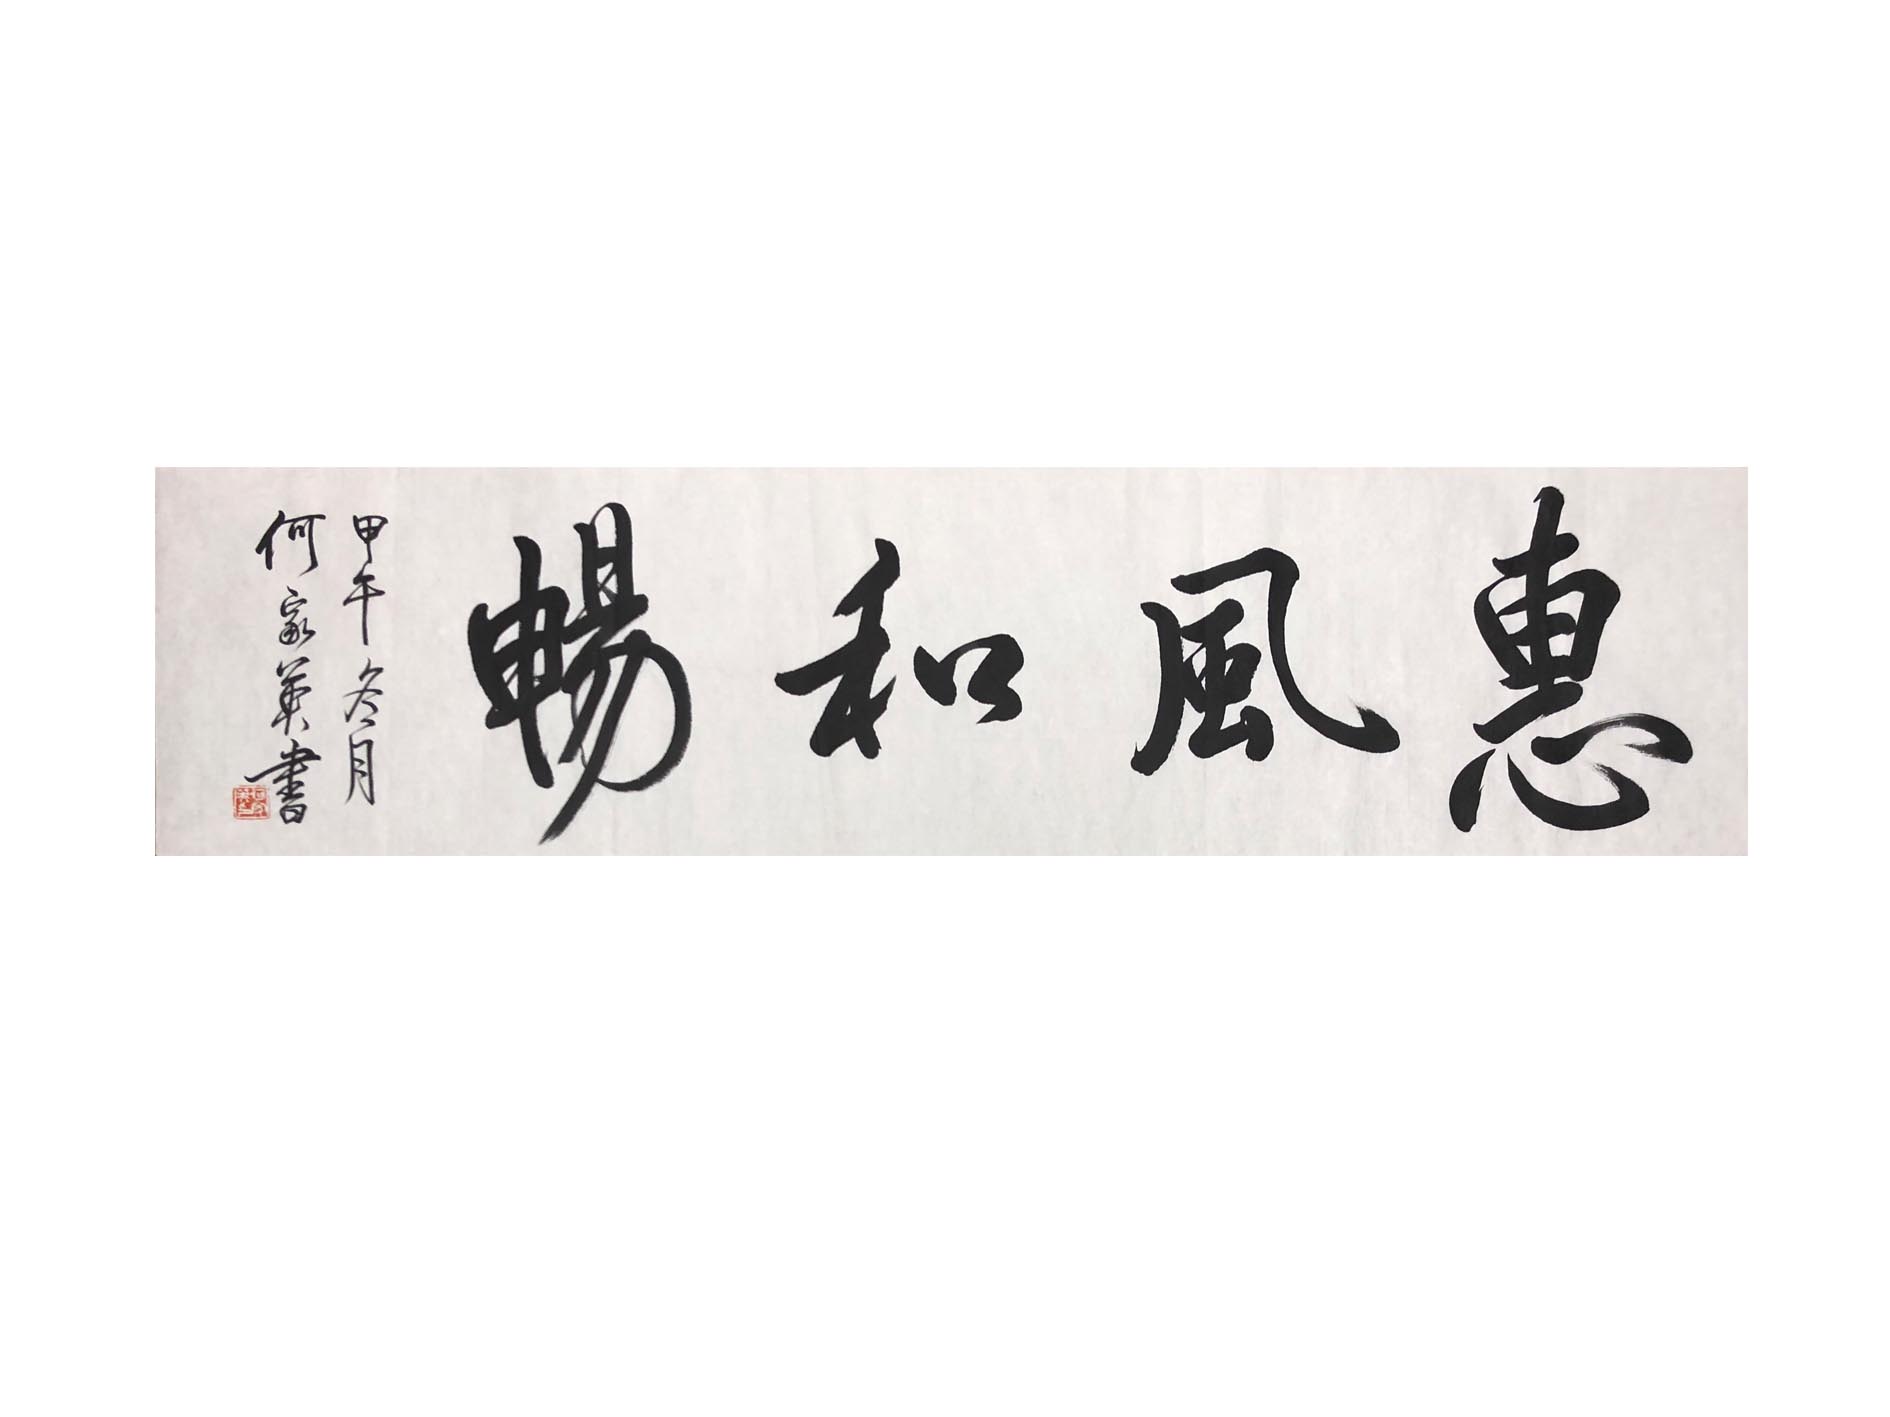 惠風和暢
甲午冬月
何家英書